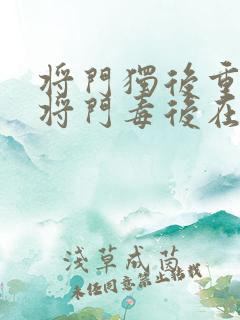 將門獨後重
將門毒後在
淺草成茵
未經同意禁止轉載